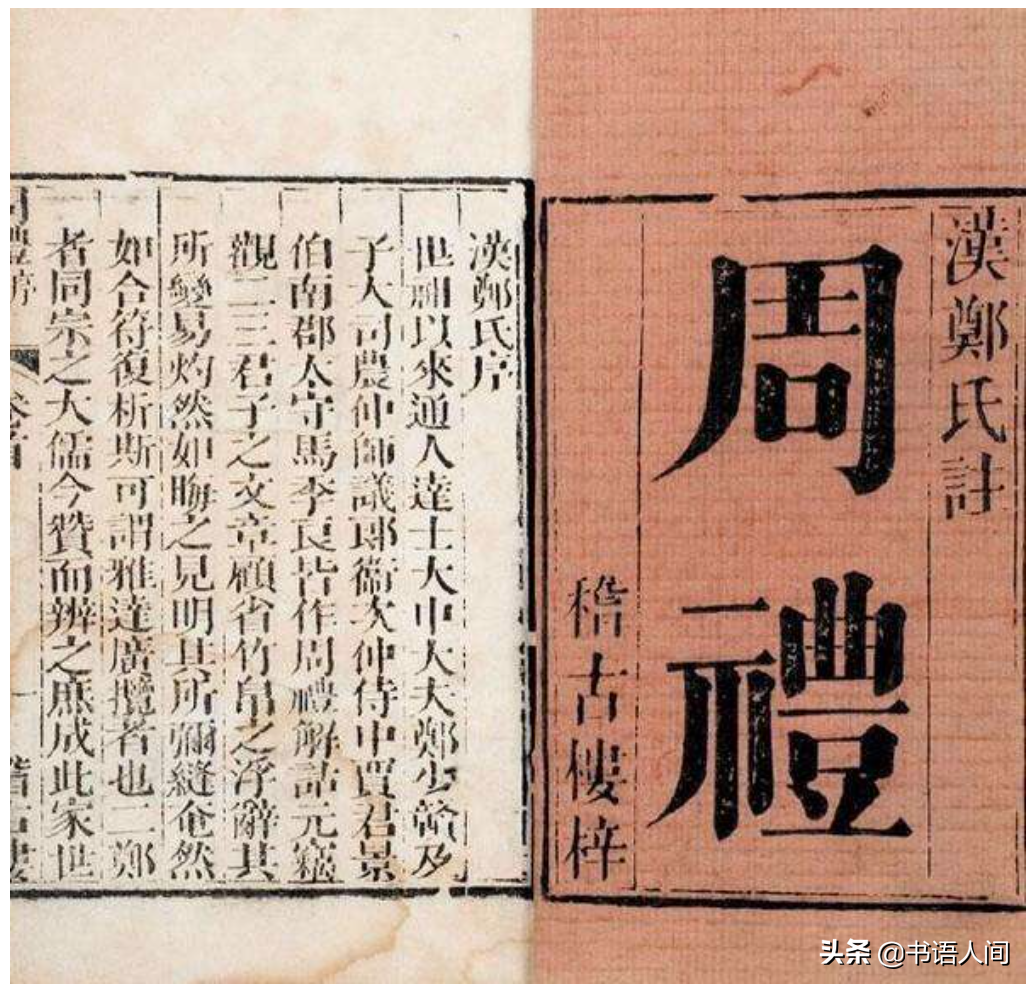 漢鄭氏註
周禮
稽古樓梓
漢鄭氏序
世祖以來通人達士大中大夫鄭少贛及
子大司農仲師議郎衞次仲侍中賈君景
伯南郡太守馬季良皆作周禮解詁元竊
觀二三君子之文章顧省竹帛之浮辭其
所變易灼然如晦之見明其所彌縫奄然
如合符復析斯可謂雅達廣攬者也二鄭
者同宗之大儒今贊而辨之庶成此家世
卷首 一 稽古樓
头条 @书语人间